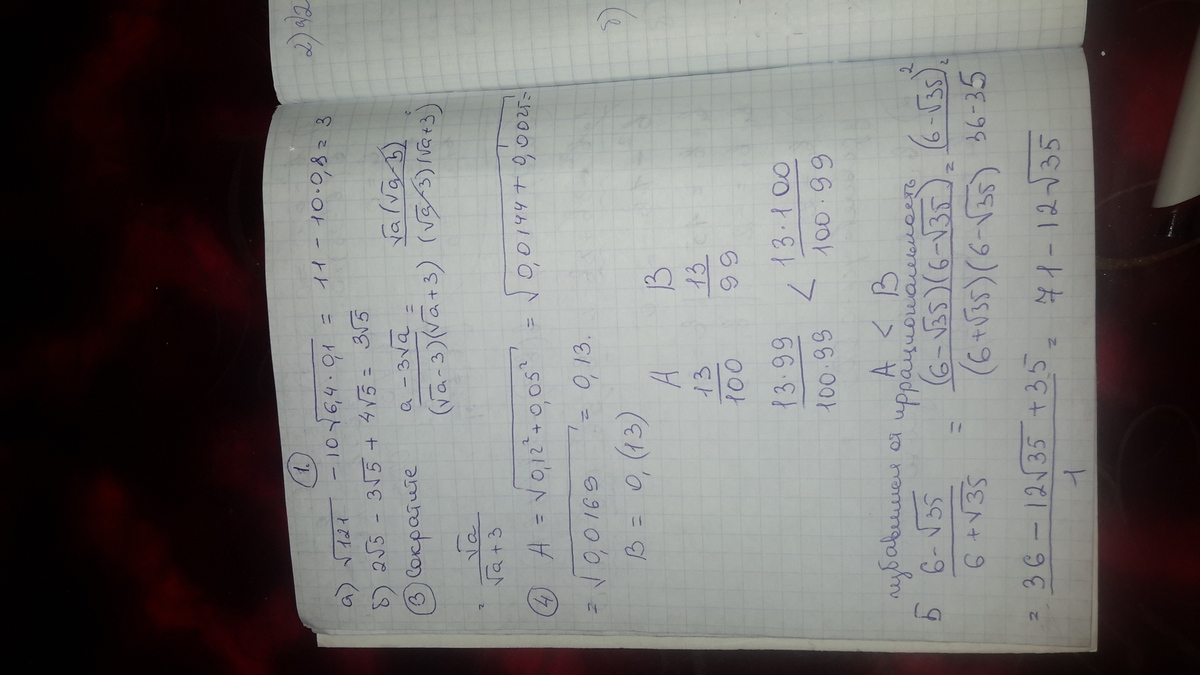 ①.
а) √121 - 10√6,4·0,1 = 11 - 10·0,8 = 3
б) 2√5 - 3√5 + 4√5 = 3√5
③ Сократите (a - 3√a)/((√a - 3)(√a + 3)) = (√a(√a - 3))/((√a - 3)(√a + 3)) =
= √a/(√a + 3)
④ A = √(0,12² + 0,05²) = √(0,0144 + 0,0025) =
= √0,0169 = 0,13.
B = 0,(13)
A B
13/100 13/99
13·99/100·99 < 13·100/100·99
A < B
избавимся от иррациональность
Б (6 - √35)/(6 + √35) = ((6 - √35)(6 - √35))/((6 + √35)(6 - √35)) = (6 - √35)²/(36 - 35) =
= (36 - 12√35 + 35)/1 = 71 - 12√35
2)
б)